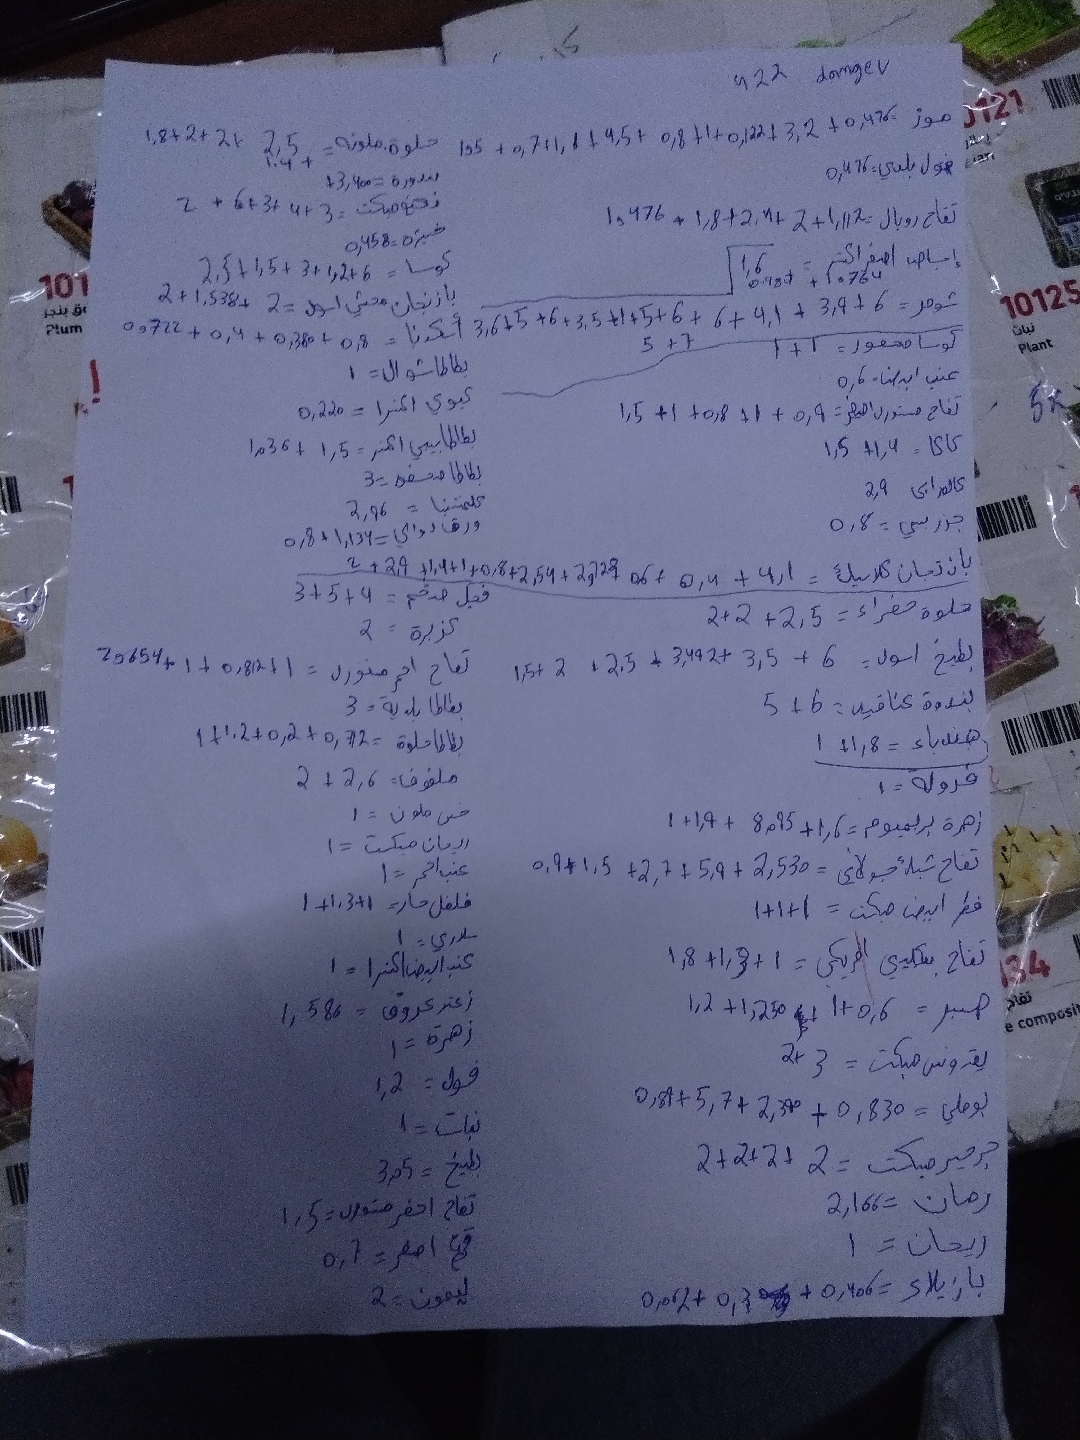 422 damgev
موز = 0,476 + 3,2 + 0,122 + 1 + 0,8 + 4,5 + 1,1 + 0,7 + 1,5
فول بلدي = 0,476
تفاح رويال = 1,112 + 2 + 2,4 + 1,8 + 1,476
إجاص اصفر اكسترا = 1,6
شومر = 6 + 3,9 + 4,1 + 6 + 6 + 5 + 1 + 3,5 + 6 + 5 + 3,6
7 + 5
كوسا محفور = 1 + 1
عنب ابيض = 0,6
تفاح مستورد اصفر = 0,9 + 1 + 0,8 + 1 + 1,5
كاكا = 1,4 + 1,5
كالورابي 2,9
جزر بيبي = 0,8
باذنجان كلاسيك = 4,1 + 0,4 + 0,6 + 2,729 + 2,54 + 0,8 + 1 + 1,4 + 2,9 + 2
حلوة خضراء = 2,5 + 2 + 2
بطيخ اسود = 6 + 3,5 + 3,492 + 2,5 + 2 + 1,5
بندورة عناقيد = 6 + 5
هندباء = 1,8 + 1
فرولة = 1
زهرة بريميوم = 1,6 + 8,095 + 1,9 + 1
تفاح شبلا جولاني = 2,530 + 5,9 + 2,7 + 1,5 + 0,9
فطر ابيض مبكت = 1+1+1
تفاح بينكليدي امريكي = 1 + 1,3 + 1,8
صبر = 0,6 + 1 + 1,250 + 1,2
بقدونس مبكت = 3 + 2
بوملي = 0,830 + 2,390 + 5,7 + 0,89
جرجير مبكت = 2 + 2 + 2 + 2
رمان = 2,166
ريحان = 1
بازيلاء = 0,406 + 0,3 + 0,062
حلوة ملونه = 2,5 + 2 + 2 + 1,8
1.4 +
بندورة = 3,400+
نعنع مبكت = 3 + 4 + 3 + 6 + 2
خبيزة = 0,458
كوسا = 6 + 1,2 + 3 + 1,5 + 2,5
باذنجان محشي اسود = 2 + 1,538 + 2
أسكدنيا = 0,8 + 0,380 + 0,4 + 0,722
بطاطا شوال = 1
كيوي اكسترا = 0,220
بطاطا بيبي احمر = 1,5 + 1,036
بطاطا مصفط = 3
كلمنتينا = 2,96
ورق دوالي = 1,134 + 0,8
فجل ضخم = 4 + 5 + 3
كزبرة = 2
تفاح احمر مستورد = 1 + 0,812 + 1 + 2,654
بطاطا بلدية = 3
بطاطا حلوة = 0,72 + 0,2 + 1,2 + 1
ملفوف = 2,6 + 2
خس ملون = 1
ريحان مبكت = 1
عنب احمر = 1
فلفل حار = 1 + 1,3 + 1
سلاري = 1
عنب ابيض اكسترا = 1
زعتر عروق = 1,580
زهرة = 1
فول = 1,2
نبات = 1
بطيخ = 3,05
تفاح اخضر مستورد = 1,5
قرع اصفر = 0,7
ليمون = 2
10121
10125
نبات
Plant
5K
101
Plum
34
composit